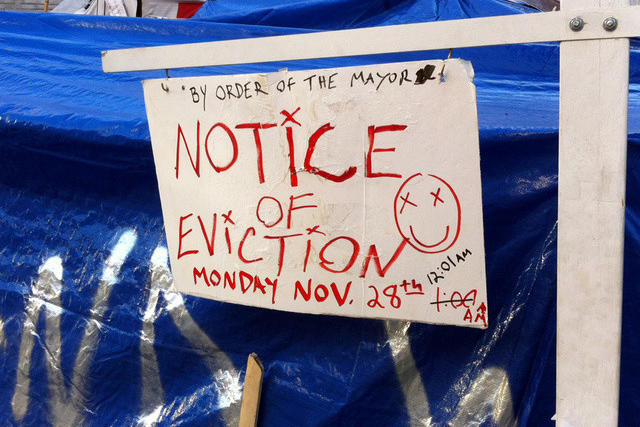 "BY ORDER OF THE MAYOR
NOTICE
OF
EVICTION
MONDAY NOV. 28th 12:01AM
1:00
AM